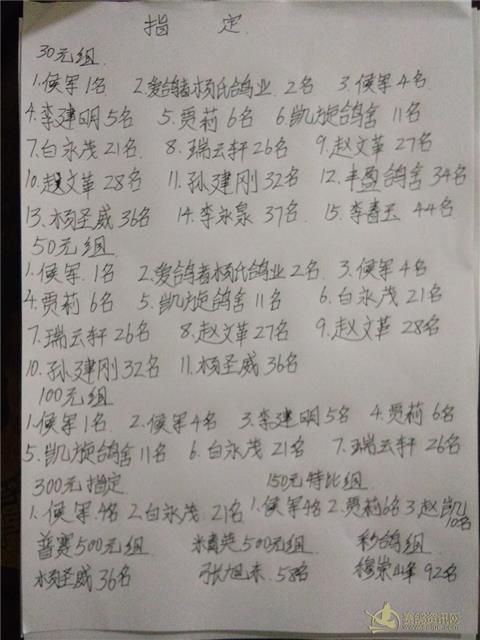 指 定
30元组
1.侯军1名 2.爱鸽者杨氏鸽业2名 3.侯军4名
4.李建明5名 5.贾莉6名 6凯旋鸽舍11名
7.白永茂21名 8.瑞云轩26名 9.赵文革27名
10.赵文革28名 11.孙建刚32名 12.丰盈鸽舍34名
13.杨圣威36名 14.李永泉37名 15.李春玉44名
50元组
1.侯军.1名 2.爱鸽者杨氏鸽业2名. 3.侯军4名
4.贾莉6名 5.凯旋鸽舍11名 6.白永茂21名
7.瑞云轩26名 8.赵文革27名 9.赵文革28名
10.孙建刚32名 11.杨圣威36名
100元组
1.侯军1名 2.侯军4名 3.李建明5名 4.贾莉6名
5.凯旋鸽舍11名 6.白永茂21名 7.瑞云轩26名
300元指定 150元特比组
1.侯军.4名 2.白永茂.21名 1.侯军4名 2.贾莉6名 3赵凯10名
普赛500元组 精英500元组 秒鸽组
杨圣威36名 张旭东58名 穆荣峰92名
赛鸽资讯网